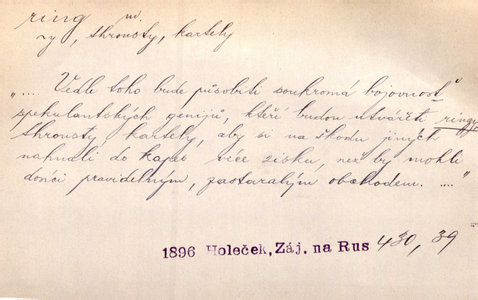 ring m.
ry, skrousty, kartely
"... Vedle toho bude působiti soukromá bojovnost"
spekulantských genijů, kteří budou utvářeti ringy
skrousty kartely, aby si na škodu jiných
nahnali do kapes více zisku, než by mohli
docíci pravidelným, zastaralým obchodem. ...."
1896 Holeček, Záj. na Rus 430, 39